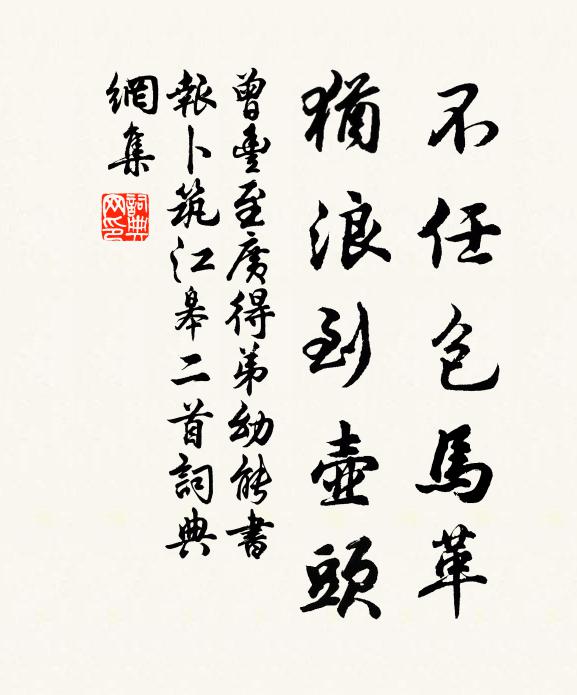 不任包馬革
猶浪到壺頭
曾豐至廣得弟幼能書
報卜筑江皋二首詞典
網集
詞典网印